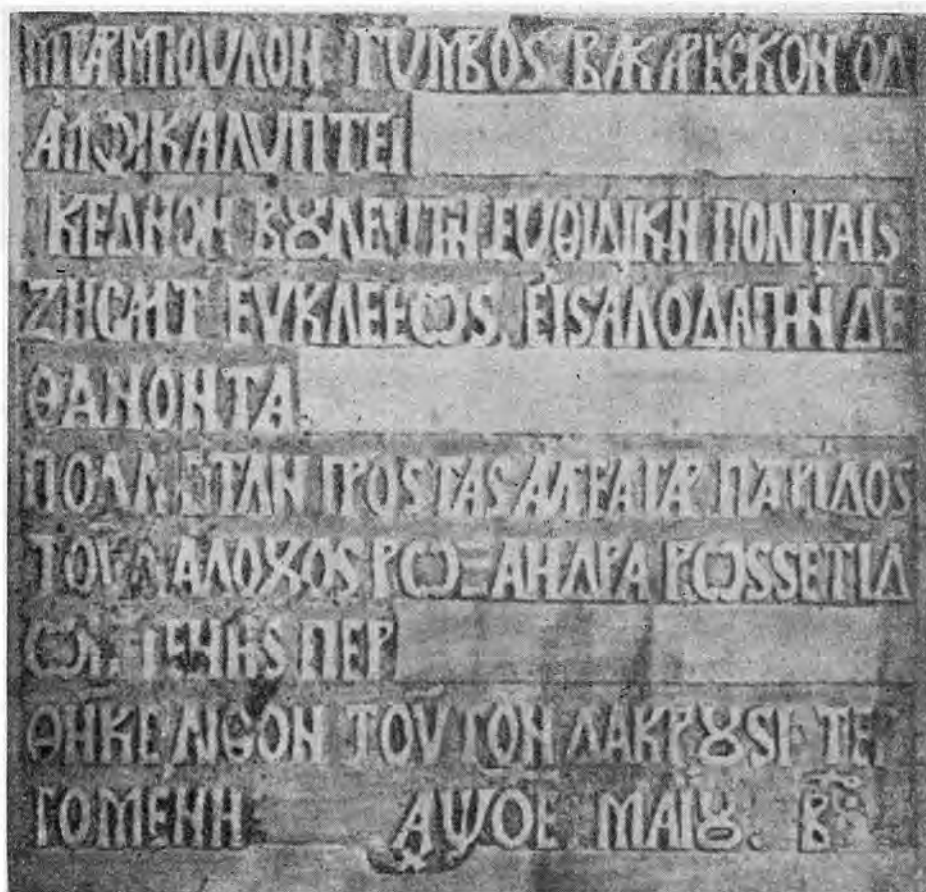 ΜΠΑΡΜΠΟΥΛΟΝ ΤΥΜΒΟS ΒΑΚΑΡΕCΚΟΝ ΟΔ
ΑΜΦΙΚΑΛΥΠΤΕΙ
ΚΕΔΝΟΝ ΒȢΛΕΥΤΗΝ ΕΥΘΙΔΙΚΗΝ ΠΟΛΙΤΑΙS
ΖΗCΑΝΤ ΕΥΚΛΕΕΩS ΕΙS ΑΛΟΔΑΠΗΝ ΔΕ
ΘΑΝΟΝΤΑ.
ΠΟΛΛ ΕΤΛΗ ΠΡΟS ΤΑS ΑΛΓΕΑ ΓΑΡ ΠΑΤΡΙΔΟS
ΤΟΥΔ ΑΛΟΧΟS ΡΩΞΑΝΔΡΑ ΡΩSSΕΤΙΔ
ΩΝ ΓΕΝΗS ΠΕΡ
ΘΗΚΕ ΛΙΘΟΝ ΤΟΥΤΟΝ ΔΑΚΡȢSΙ ΤΕΡ
ΓΟΜΕΝΗ ΑΨΟΕ ΜΑΙȢ.